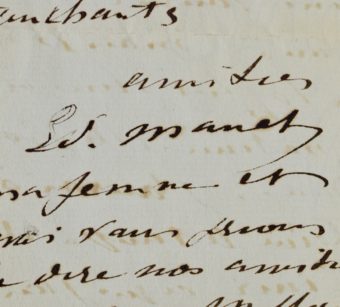 amitiés
Ed. Manet
ma femme et
moi vous prions
de dire nos amiti